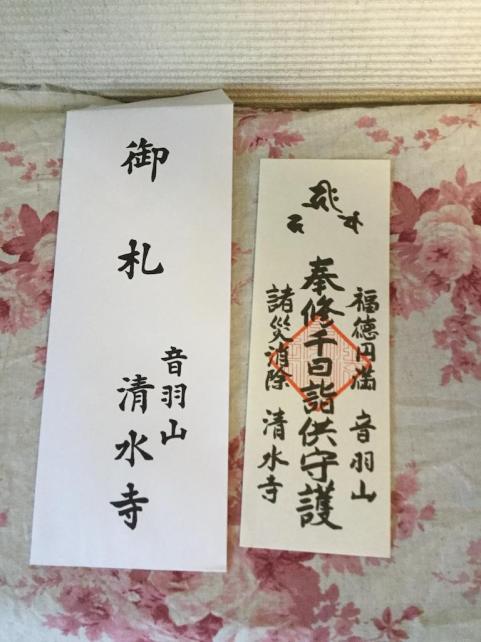 御札
音羽山
清水寺
福徳円満 音羽山
奉修千日詣供守護
諸災消除 清水寺